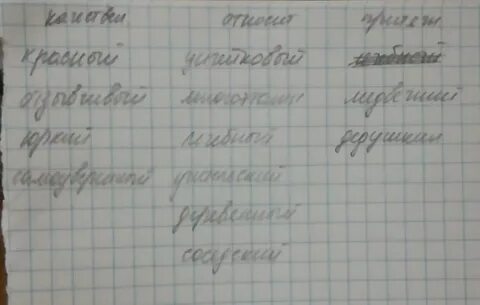 качествен относит притяж
красный цинковый
отзывчивый многоэтажн медвежий
юркий лечебный дедушкин
самоуверенный учительский
деревенный
соседский